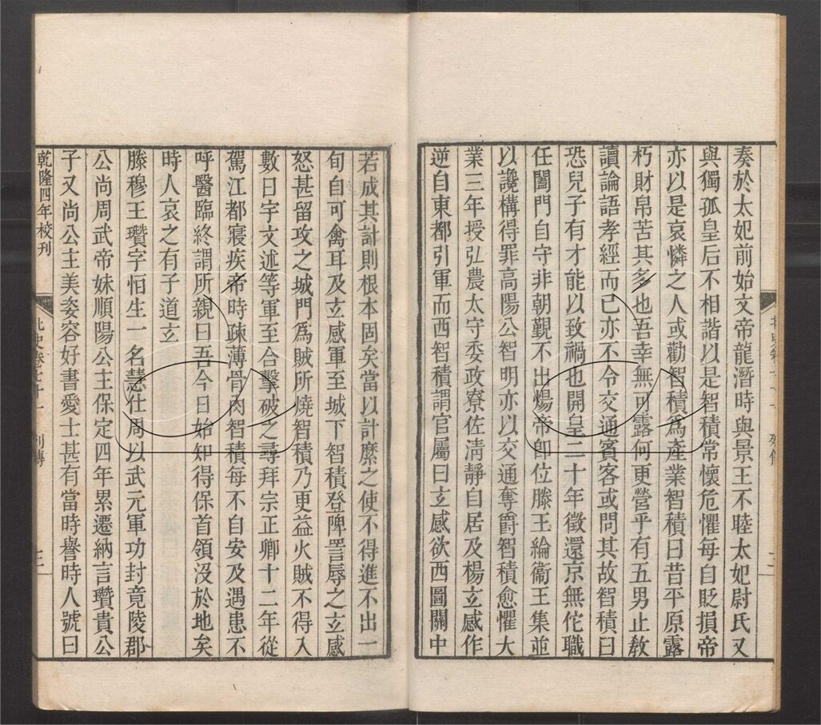 奏於太妃前始文帝龍潛時與景王不睦太妃尉氏又
與獨孤皇后不相諧以是智積常懷危懼每自貶損帝
亦以是哀憐之人或勸智積爲產業智積曰昔平原露
朽財帛苦其多也吾幸無可露何更營乎有五男止敎
讀論語孝經而已亦不令交通賓客或問其故智積曰
恐兒子有才能以致禍也開皇二十年徵還京無佗職
任闔門自守非朝覲不出煬帝卽位滕王綸衞王集並
以讒構得罪高陽公智明亦以交通奪爵智積愈懼大
業三年授弘農太守委政寮佐淸靜自居及楊玄感作
逆自東都引軍而西智積謂官屬曰玄感欲西圖關中
若成其計則根本固矣當以計縻之使不得進不出一
旬自可禽耳及玄感軍至城下智積登陴詈辱之玄感
怒甚留攻之城門爲賊所燒智積乃更益火賊不得入
數日宇文述等軍至合擊破之尋拜宗正卿十二年從
駕江都寢疾帝時疎薄骨肉智積每不自安及遇患不
呼醫臨終謂所親曰吾今日始知得保首領沒於地矣
時人哀之有子道玄
滕穆王瓚字恒生一名慧仕周以武元軍功封竟陵郡
公尚周武帝妹順陽公主保定四年累遷納言瓚貴公
子又尚公主美姿容好書愛士甚有當時譽時人號曰
乾隆四年校刊
北史卷七十一 列傳